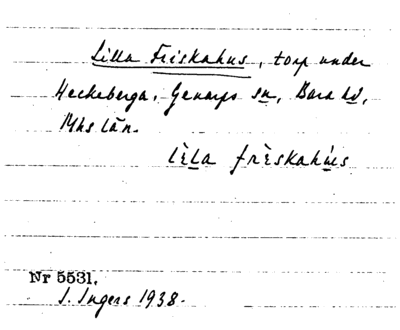 Lilla Friskahus, torp under
Heckeberga, Genarps sn, Bara hd,
Mhs län.
lìla frìskahùs
Nr 5531.
I. Ingers 1938.